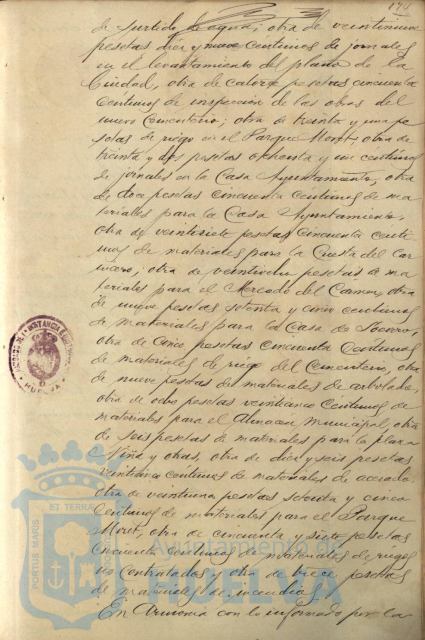 174
de surtido de agua; otra de veintinueve
pesetas diez y nueve centimos de jornales
en el levantamiento del plano de la
Ciudad, otra de catorce pesetas cincuenta
centimos de inspeccion de las obras del
nuevo Cementerio; otra de treinta y una pe
setas de riego en el Parque Moret, otra de
treinta y dos pesetas ochenta y un centimos
de jornales en la Casa Ayuntamiento, otra
de doce pesetas cincuenta centimos de ma
teriales para la Casa Ayuntamiento,
otra de veintisiete pesetas cincuenta centi
mos de materiales para la Cuesta del Car
nicero; otra de veintiocho pesetas de ma
teriales para el Mercado del Carmen, otra
de nueve pesetas setenta y cinco centimos
de materiales para la Casa de Socorro,
otra de cinco pesetas cincuenta centimos
de materiales de riego del Cementerio, otra
de nueve pesetas de materiales de arbolado,
otra de ocho pesetas veinticinco centimos de
materiales para el Almacen Municipal, otra
de seis pesetas de materiales para la plaza
Niña y otras, otra de diez y seis pesetas
veinticinco centimos de materiales de acerado,
otra de veintiuna pesetas setenta y cinco
centimos de materiales para el Parque
Moret, otra de cincuenta y siete pesetas
cincuenta centimos de materiales de riegos
no contratados y otra de trece pesetas
de materiales de incendios.
En armonia con lo informado por la
HUELVA
PORTUS MARIS ET TERRAE
Ayuntamiento
HUELVA